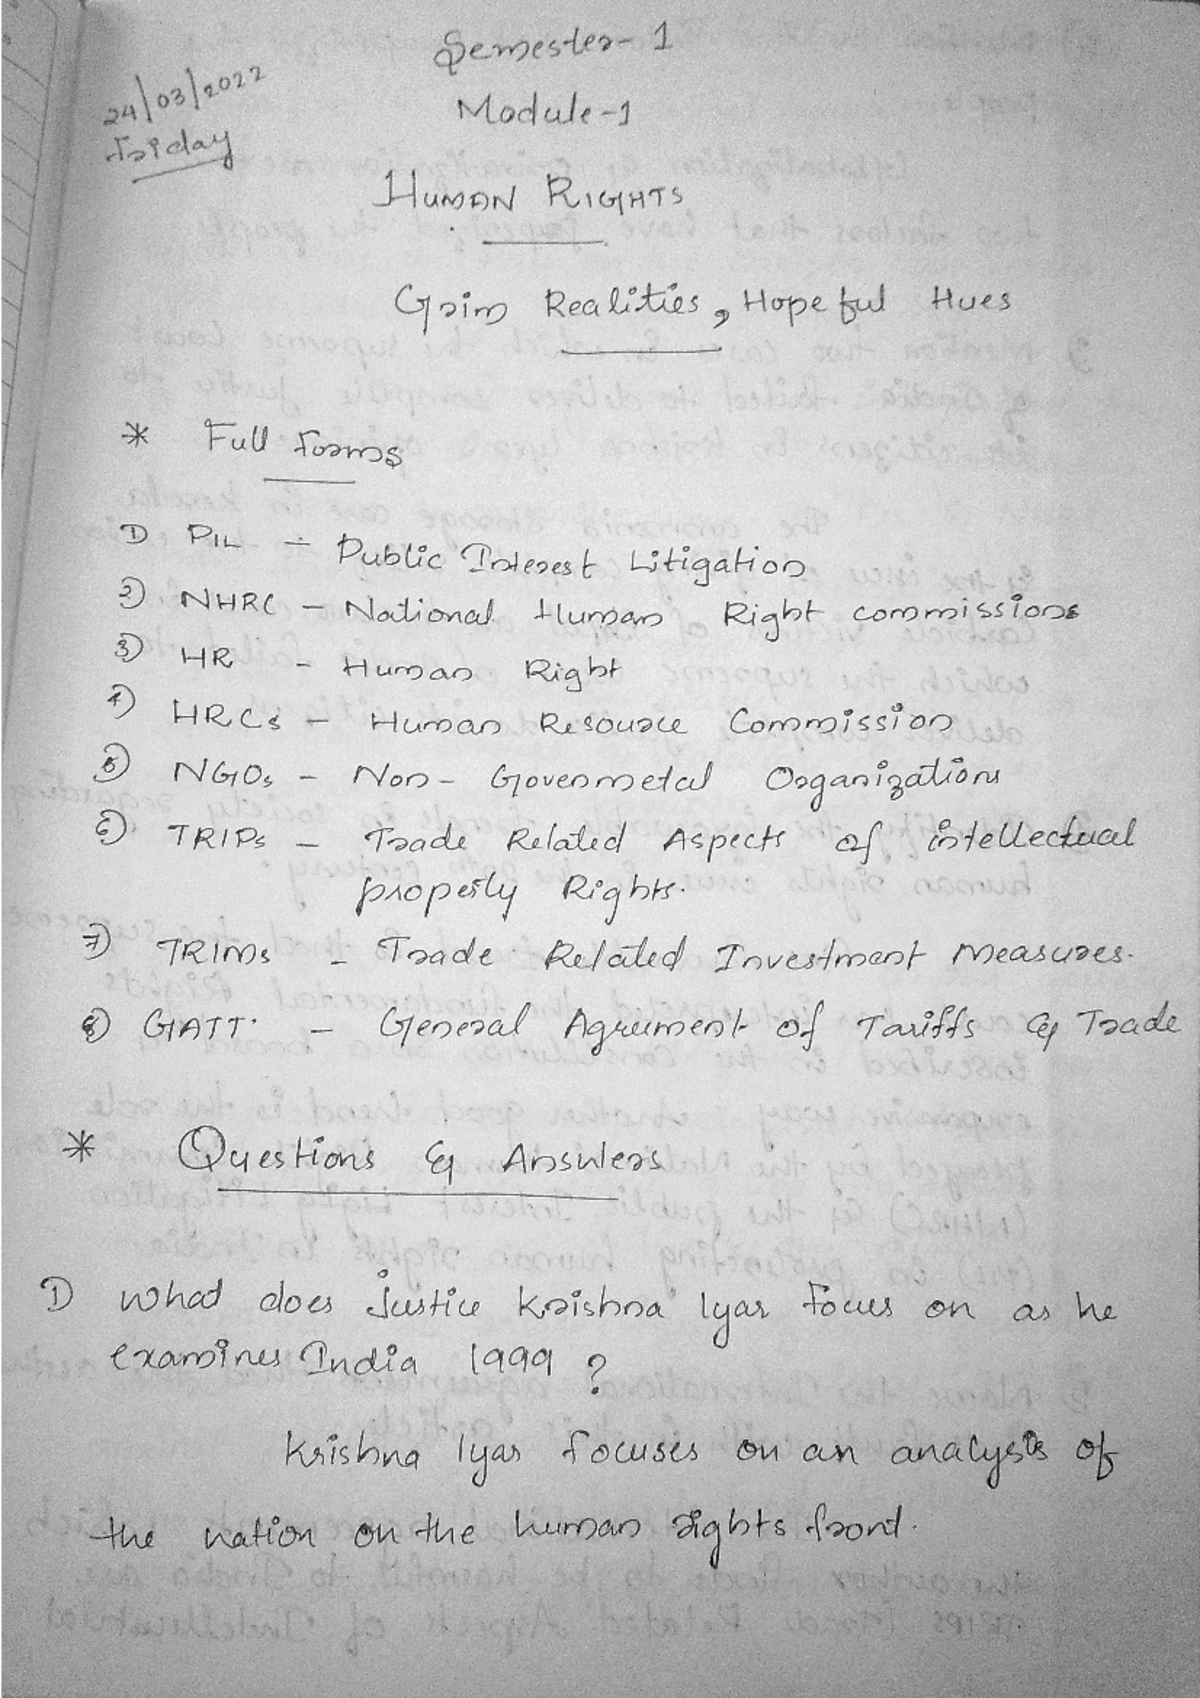 Semester-1
24/03/2022
Module-1
Friday
HUMAN RIGHTS
Grim Realities, Hopeful Hues
* Full forms
1) PIL - Public Interest Litigation
2) NHRC - National Human Right commissions
3) HR - Human Right
4) HRCs - Human Resource Commission
5) NGOs - Non-Govenmetal Organizations
6) TRIPs - Trade Related Aspects of intellectual
property Rights.
7) TRIMs - Trade Related Investment Measures.
8) GATT. - General Agreement of Tariffs & Trade
* Questions & Answers
1) What does justice Krishna Iyar focus on as he
examines India 1999 ?
Krishna Iyar focuses on an analysis of
the nation on the human rights front.